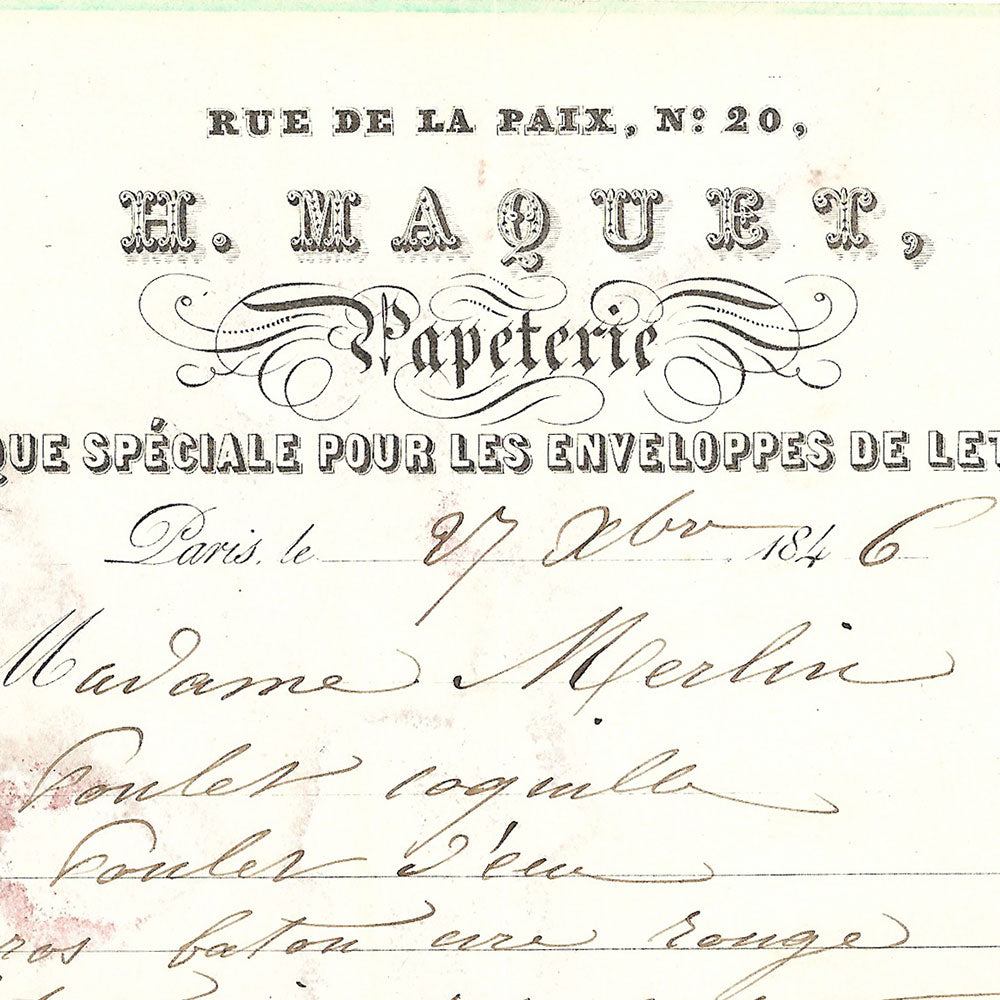 RUE DE LA PAIX, Nº 20,
H. MAQUET,
Papeterie
QUE SPÉCIALE POUR LES ENVELOPPES DE LET
Paris, le 27 Xbre 1846
Madame Merlin
Poulet coquille
Poulet d'eu
ros baton cire rouge